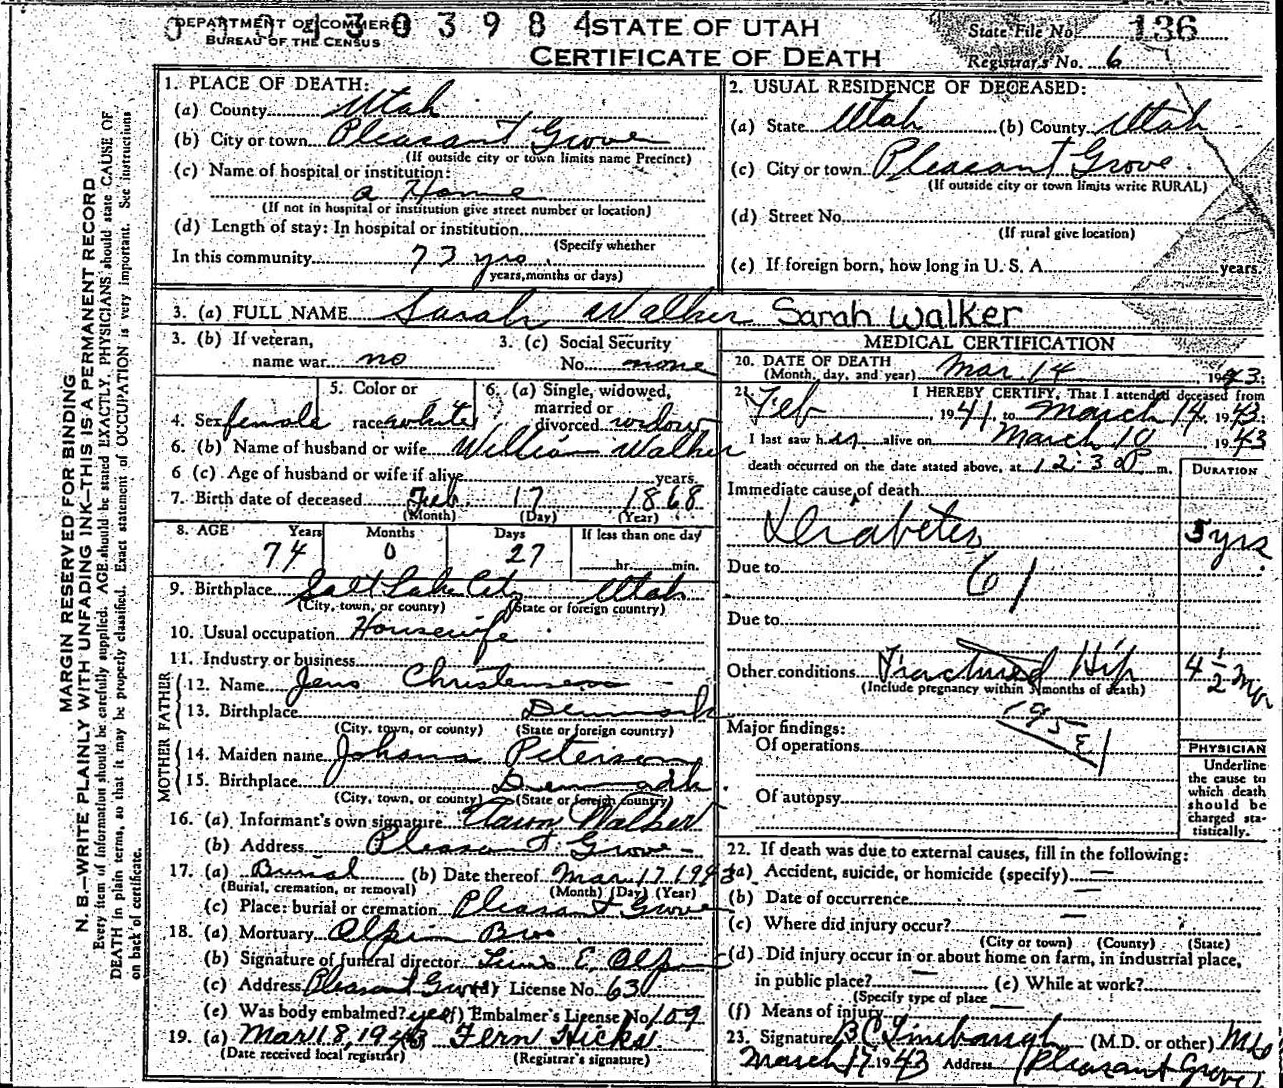 DEPARTMENT OF COMMERCE
BUREAU OF THE CENSUS
0 0 0 4 3 0 3 9 8 4
STATE OF UTAH
CERTIFICATE OF DEATH
State File No. 136
Registrar's No. 6
MARGIN RESERVED FOR BINDING
N. B.—WRITE PLAINLY WITH UNFADING INK—THIS IS A PERMANENT RECORD
Every item of information should be carefully supplied. AGE should be stated EXACTLY. PHYSICIANS should state CAUSE OF
DEATH in plain terms, so that it may be properly classified. Exact statement of OCCUPATION is very important. See instructions
on back of certificate.
1. PLACE OF DEATH:
(a) County Utah
(b) City or town Pleasant Grove
(If outside city or town limits name Precinct)
(c) Name of hospital or institution:
a Home
(If not in hospital or institution give street number or location)
(d) Length of stay: In hospital or institution
(Specify whether
In this community 73 yrs
years, months or days)
2. USUAL RESIDENCE OF DECEASED:
(a) State Utah (b) County Utah
(c) City or town Pleasant Grove
(If outside city or town limits write RURAL)
(d) Street No.
(If rural give location)
(e) If foreign born, how long in U. S. A. years.
3. (a) FULL NAME Sarah Walker Sarah Walker
3. (b) If veteran,
name war no
3. (c) Social Security
No. none
4. Sex female
5. Color or
race white
6. (a) Single, widowed,
married or
divorced widow
6. (b) Name of husband or wife William Walker
6 (c) Age of husband or wife if alive years.
7. Birth date of deceased Feb. 17 1868
(Month) (Day) (Year)
8. AGE Years Months Days If less than one day
74 0 27 hr. min.
9. Birthplace Salt Lake City Utah
(City, town, or county) (State or foreign country)
10. Usual occupation Housewife
11. Industry or business
FATHER
12. Name Jens Christensen
13. Birthplace Denmark
(City, town, or county) (State or foreign country)
MOTHER
14. Maiden name Johana Peterson
15. Birthplace Denmark
(City, town, or county) (State or foreign country)
16. (a) Informant's own signature Aaron Walker
(b) Address Pleasant Grove
17. (a) Burial (b) Date thereof Mar 17, 1943
(Burial, cremation, or removal) (Month) (Day) (Year)
(c) Place: burial or cremation Pleasant Grove
18. (a) Mortuary Olpin Bros
(b) Signature of funeral director E. Olpin
(c) Address Pleasant Grove (d) License No. 630
(e) Was body embalmed? yes (f) Embalmer's License No. 109
19. (a) Mar 18, 1943 Fern Hicks
(Date received local registrar) (Registrar's signature)
MEDICAL CERTIFICATION
20. DATE OF DEATH
(Month, day, and year) Mar 14 1943.
21. I HEREBY CERTIFY, That I attended deceased from
Feb 1941 to March 14 1943.
I last saw her alive on March 10 1943
death occurred on the date stated above, at 12:30 P m.
DURATION
Immediate cause of death
Diabetes 5 yrs.
Due to 61
Due to
Other conditions Fractured Hip 4 1/2 Mo
(Include pregnancy within 3 months of death)
195
Major findings:
Of operations
Of autopsy
PHYSICIAN
Underline
the cause to
which death
should be
charged sta-
tistically.
22. If death was due to external causes, fill in the following:
(a) Accident, suicide, or homicide (specify) —
(b) Date of occurrence —
(c) Where did injury occur? —
(City or town) (County) (State)
(d) Did injury occur in or about home on farm, in industrial place,
in public place? — (e) While at work?
(Specify type of place
(f) Means of injury —
23. Signature B C Linebaugh (M.D. or other) MD
March 17 1943 Address Pleasant Grove